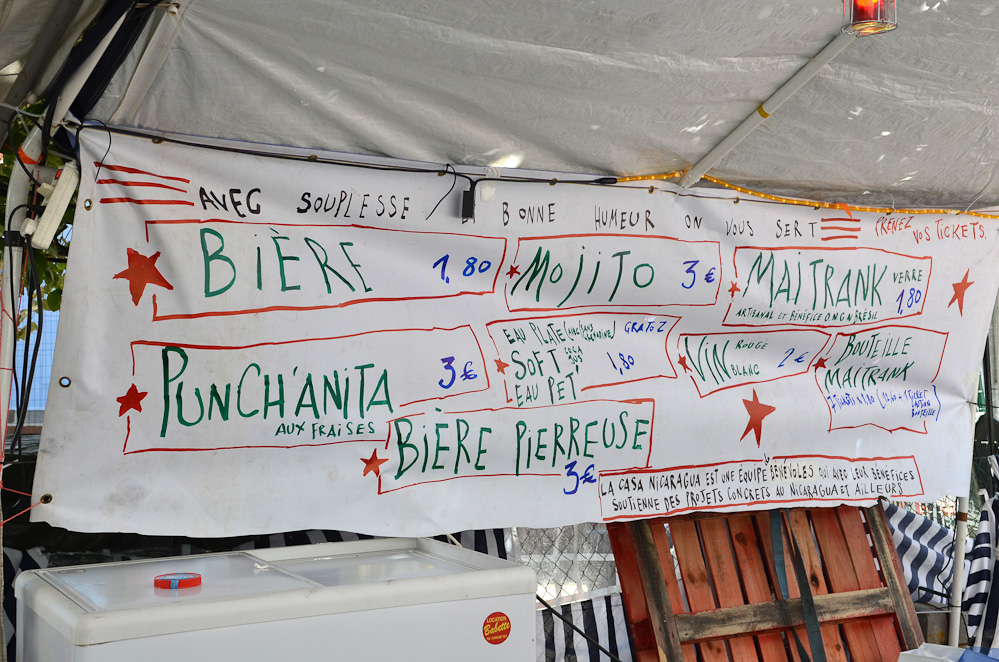 AVEC SOUPLESSE / BONNE HUMEUR ON VOUS SERT PRENEZ VOS TICKETS.
BIÈRE 1,80
MOJITO 3€
MAITRANK VERRE 1,80
ARTISANAL ET BÉNÉFICE O.N.G.N BRÉSIL
PUNCH'ANITA 3€
AUX FRAISES
EAU PLATE GRATOZ
SOFT COCA 1,80
EAU PET'
VIN ROUGE 2€
BLANC
BOUTEILLE
MAITRANK
BIÈRE PIERREUSE
3€
LA CASA NICARAGUA EST UNE ÉQUIPE BÉNÉVOLES QUI AVEC LEUR BÉNÉFICES
SOUTIENNE DES PROJETS CONCRETS AU NICARAGUA ET AILLEURS
LOCATION
Babette